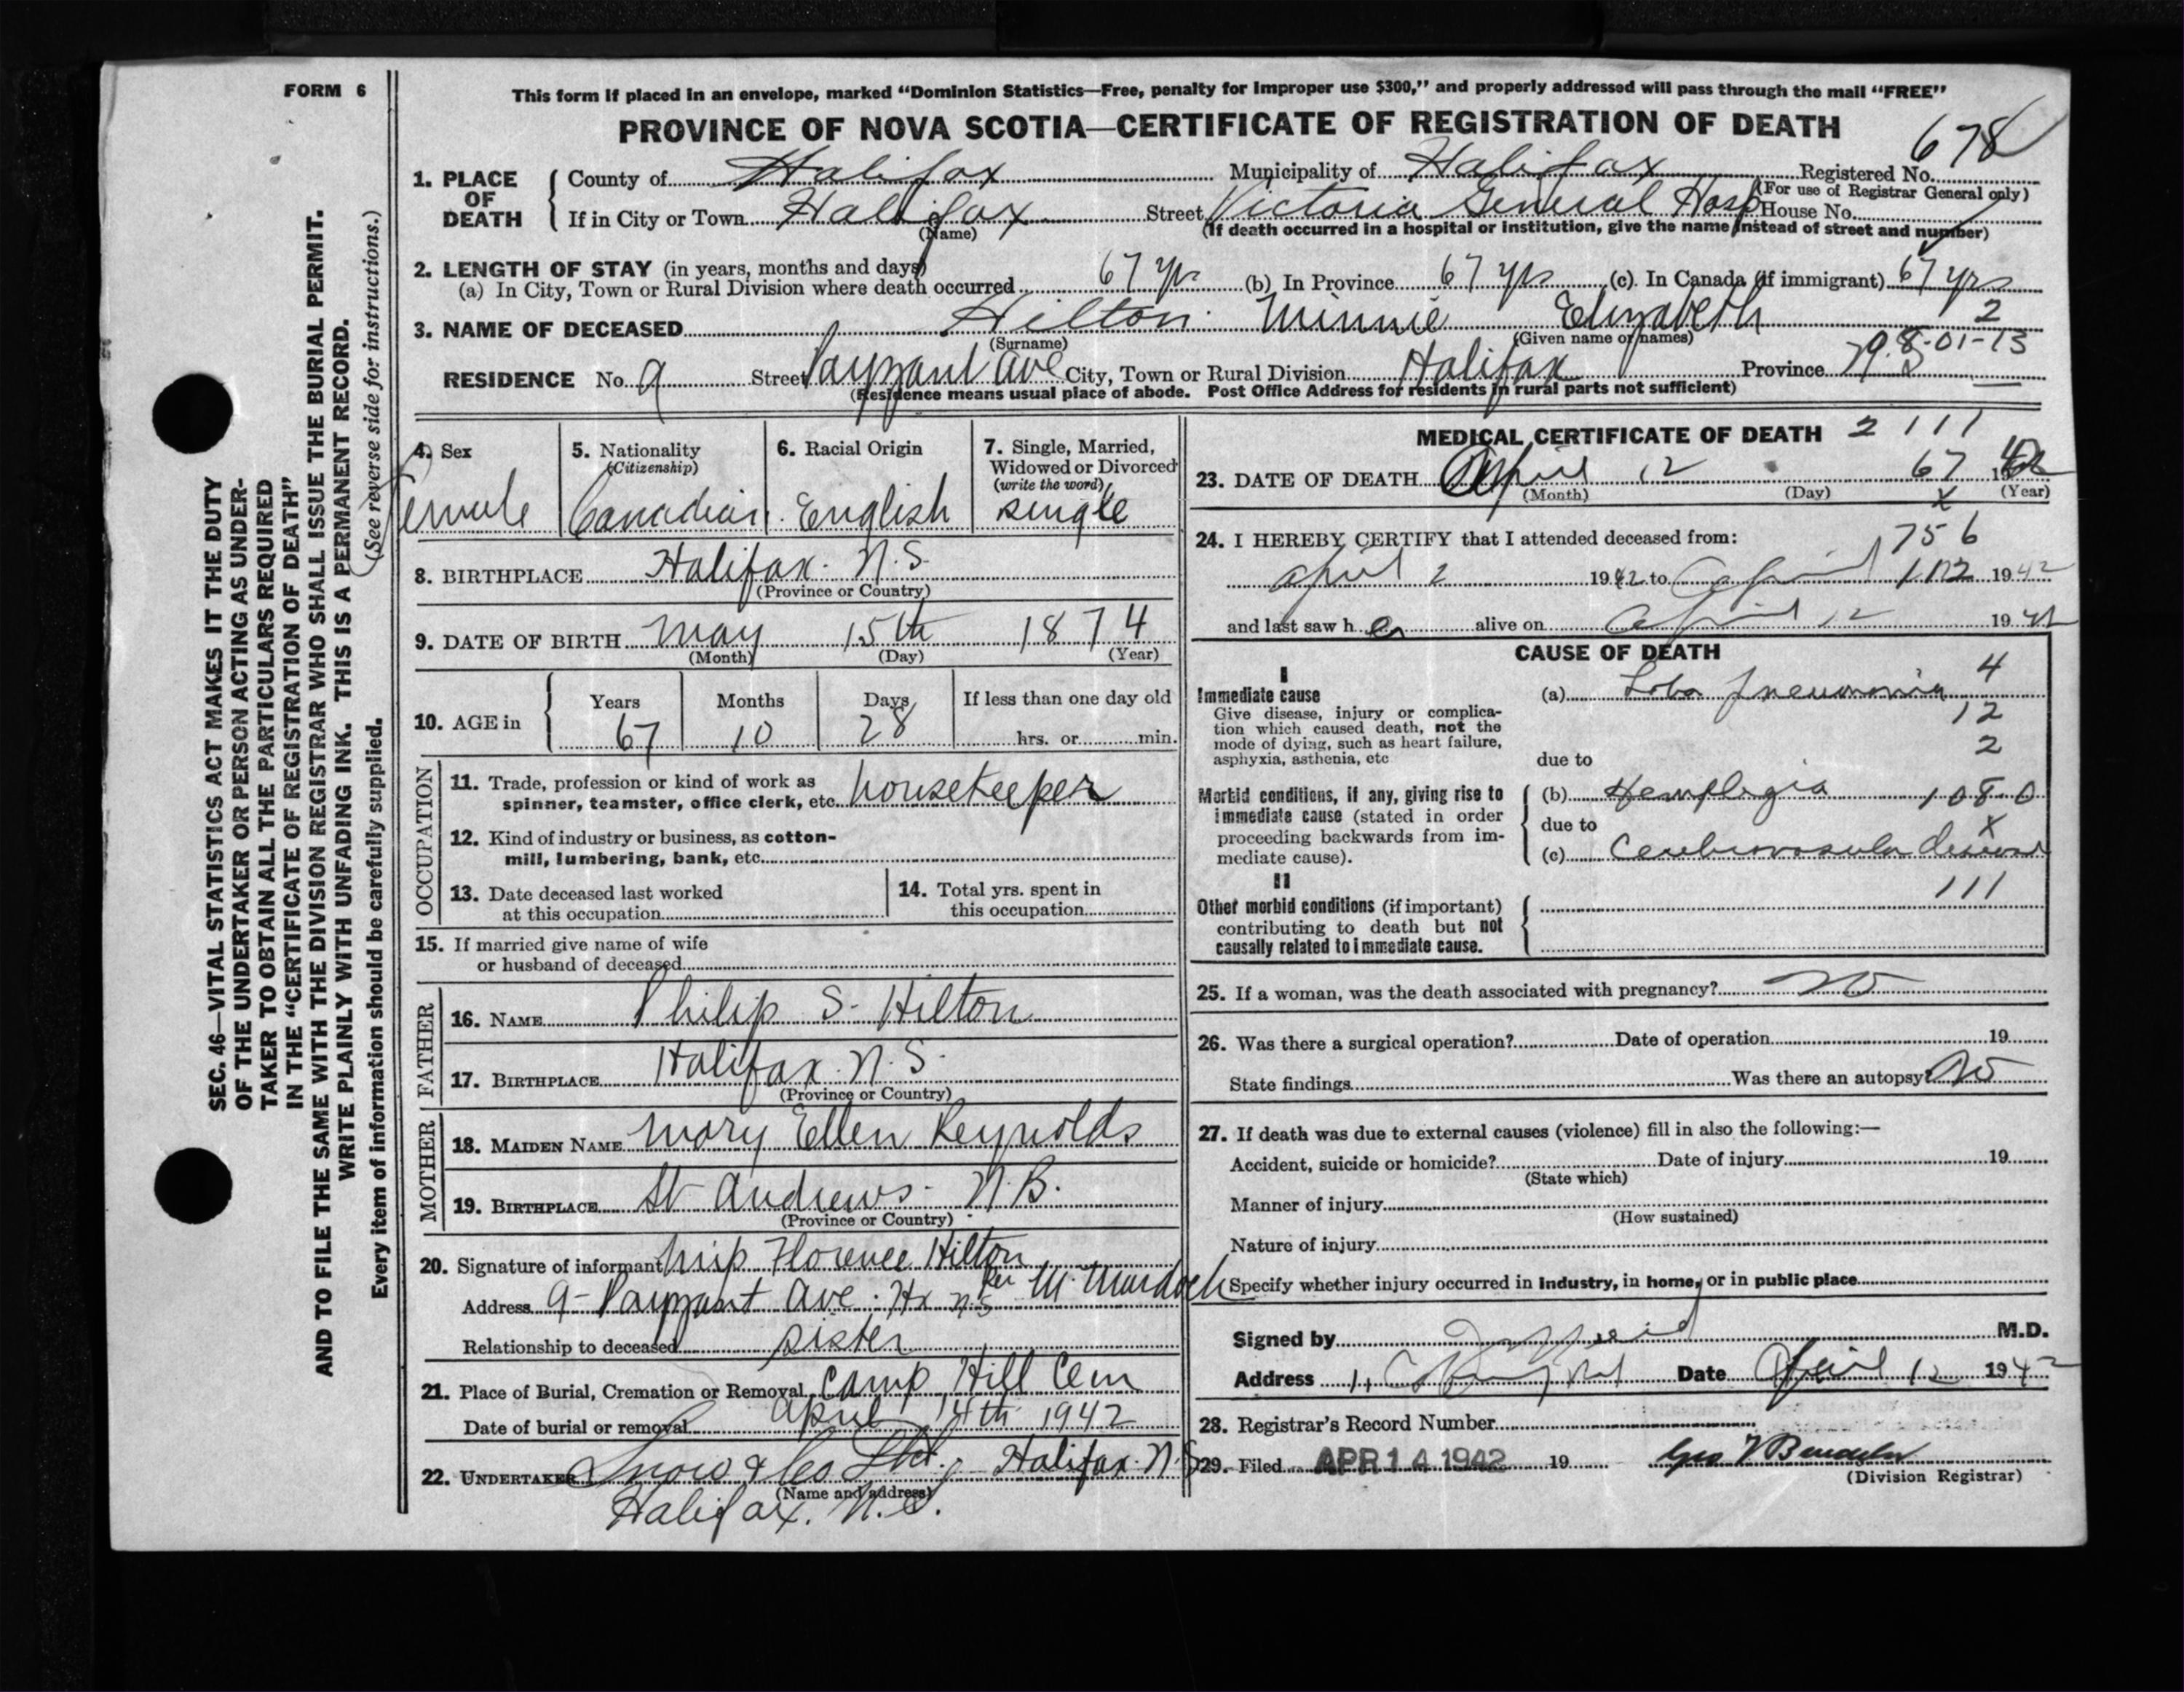 FORM 6
This form if placed in an envelope, marked “Dominion Statistics—Free, penalty for improper use $300,” and properly addressed will pass through the mail “FREE”
PROVINCE OF NOVA SCOTIA—CERTIFICATE OF REGISTRATION OF DEATH
678
1. PLACE OF DEATH
County of Halifax Municipality of Halifax Registered No.
(For use of Registrar General only)
If in City or Town Halifax Street Victoria General Hosp House No.
(Name) (If death occurred in a hospital or institution, give the name instead of street and number)
2. LENGTH OF STAY (in years, months and days)
(a) In City, Town or Rural Division where death occurred 67 yrs (b) In Province 67 yrs (c) In Canada (if immigrant) 67 yrs
2
3. NAME OF DECEASED Hilton Minnie Elizabeth
(Surname) (Given name or names)
8-01-13
RESIDENCE No. 9 Street Payzant Ave City, Town or Rural Division Halifax Province N.S
(Residence means usual place of abode. Post Office Address for residents in rural parts not sufficient)
4. Sex
Female
5. Nationality
(Citizenship)
Canadian
6. Racial Origin
English
7. Single, Married,
Widowed or Divorced
(write the word)
single
8. BIRTHPLACE Halifax. N.S.
(Province or Country)
9. DATE OF BIRTH May 15th 1874
(Month) (Day) (Year)
10. AGE in
Years Months Days If less than one day old
67 10 28 hrs. or min.
OCCUPATION
11. Trade, profession or kind of work as
spinner, teamster, office clerk, etc. housekeeper
12. Kind of industry or business, as cotton-
mill, lumbering, bank, etc.
13. Date deceased last worked
at this occupation
14. Total yrs. spent in
this occupation
15. If married give name of wife
or husband of deceased
FATHER
16. NAME Philip S. Hilton
17. BIRTHPLACE Halifax. N.S.
(Province or Country)
MOTHER
18. MAIDEN NAME Mary Ellen Reynolds
19. BIRTHPLACE St Andrews. N.B.
(Province or Country)
20. Signature of informant Miss Florence Hilton
Per M. Murdoch
Address 9- Payzant Ave. Hx N.S
Relationship to deceased sister
21. Place of Burial, Cremation or Removal Camp Hill Cem
Date of burial or removal April 14th 1942
22. UNDERTAKER Snow & Co Ltd. Halifax. N.S
(Name and address)
Halifax. N.S.
MEDICAL CERTIFICATE OF DEATH 2 111
23. DATE OF DEATH April 12 67 1942
(Month) (Day) (Year)
x
24. I HEREBY CERTIFY that I attended deceased from:
756
April 2 1942 to April 12 1942
and last saw her alive on April 12 1942
CAUSE OF DEATH
I
Immediate cause
Give disease, injury or complica-
tion which caused death, not the
mode of dying, such as heart failure,
asphyxia, asthenia, etc
(a) Loba pneumonia 4
12
2
due to
Morbid conditions, if any, giving rise to
immediate cause (stated in order
proceeding backwards from im-
mediate cause).
(b) Hemplegia 108.0
due to x
(c) Cerebrovascula disease
111
II
Other morbid conditions (if important)
contributing to death but not
causally related to immediate cause.
25. If a woman, was the death associated with pregnancy? no
26. Was there a surgical operation? Date of operation 19
State findings Was there an autopsy? no
27. If death was due to external causes (violence) fill in also the following:—
Accident, suicide or homicide? Date of injury 19
(State which)
Manner of injury
(How sustained)
Nature of injury
Specify whether injury occurred in industry, in home, or in public place
Signed by M.D.
Address Date April 12 1942
28. Registrar's Record Number
29. Filed APR 14 1942 19
(Division Registrar)
SEC. 46—VITAL STATISTICS ACT MAKES IT THE DUTY
OF THE UNDERTAKER OR PERSON ACTING AS UNDER-
TAKER TO OBTAIN ALL THE PARTICULARS REQUIRED
IN THE “CERTIFICATE OF REGISTRATION OF DEATH”
AND TO FILE THE SAME WITH THE DIVISION REGISTRAR WHO SHALL ISSUE THE BURIAL PERMIT.
WRITE PLAINLY WITH UNFADING INK. THIS IS A PERMANENT RECORD.
Every item of information should be carefully supplied. (See reverse side for instructions.)